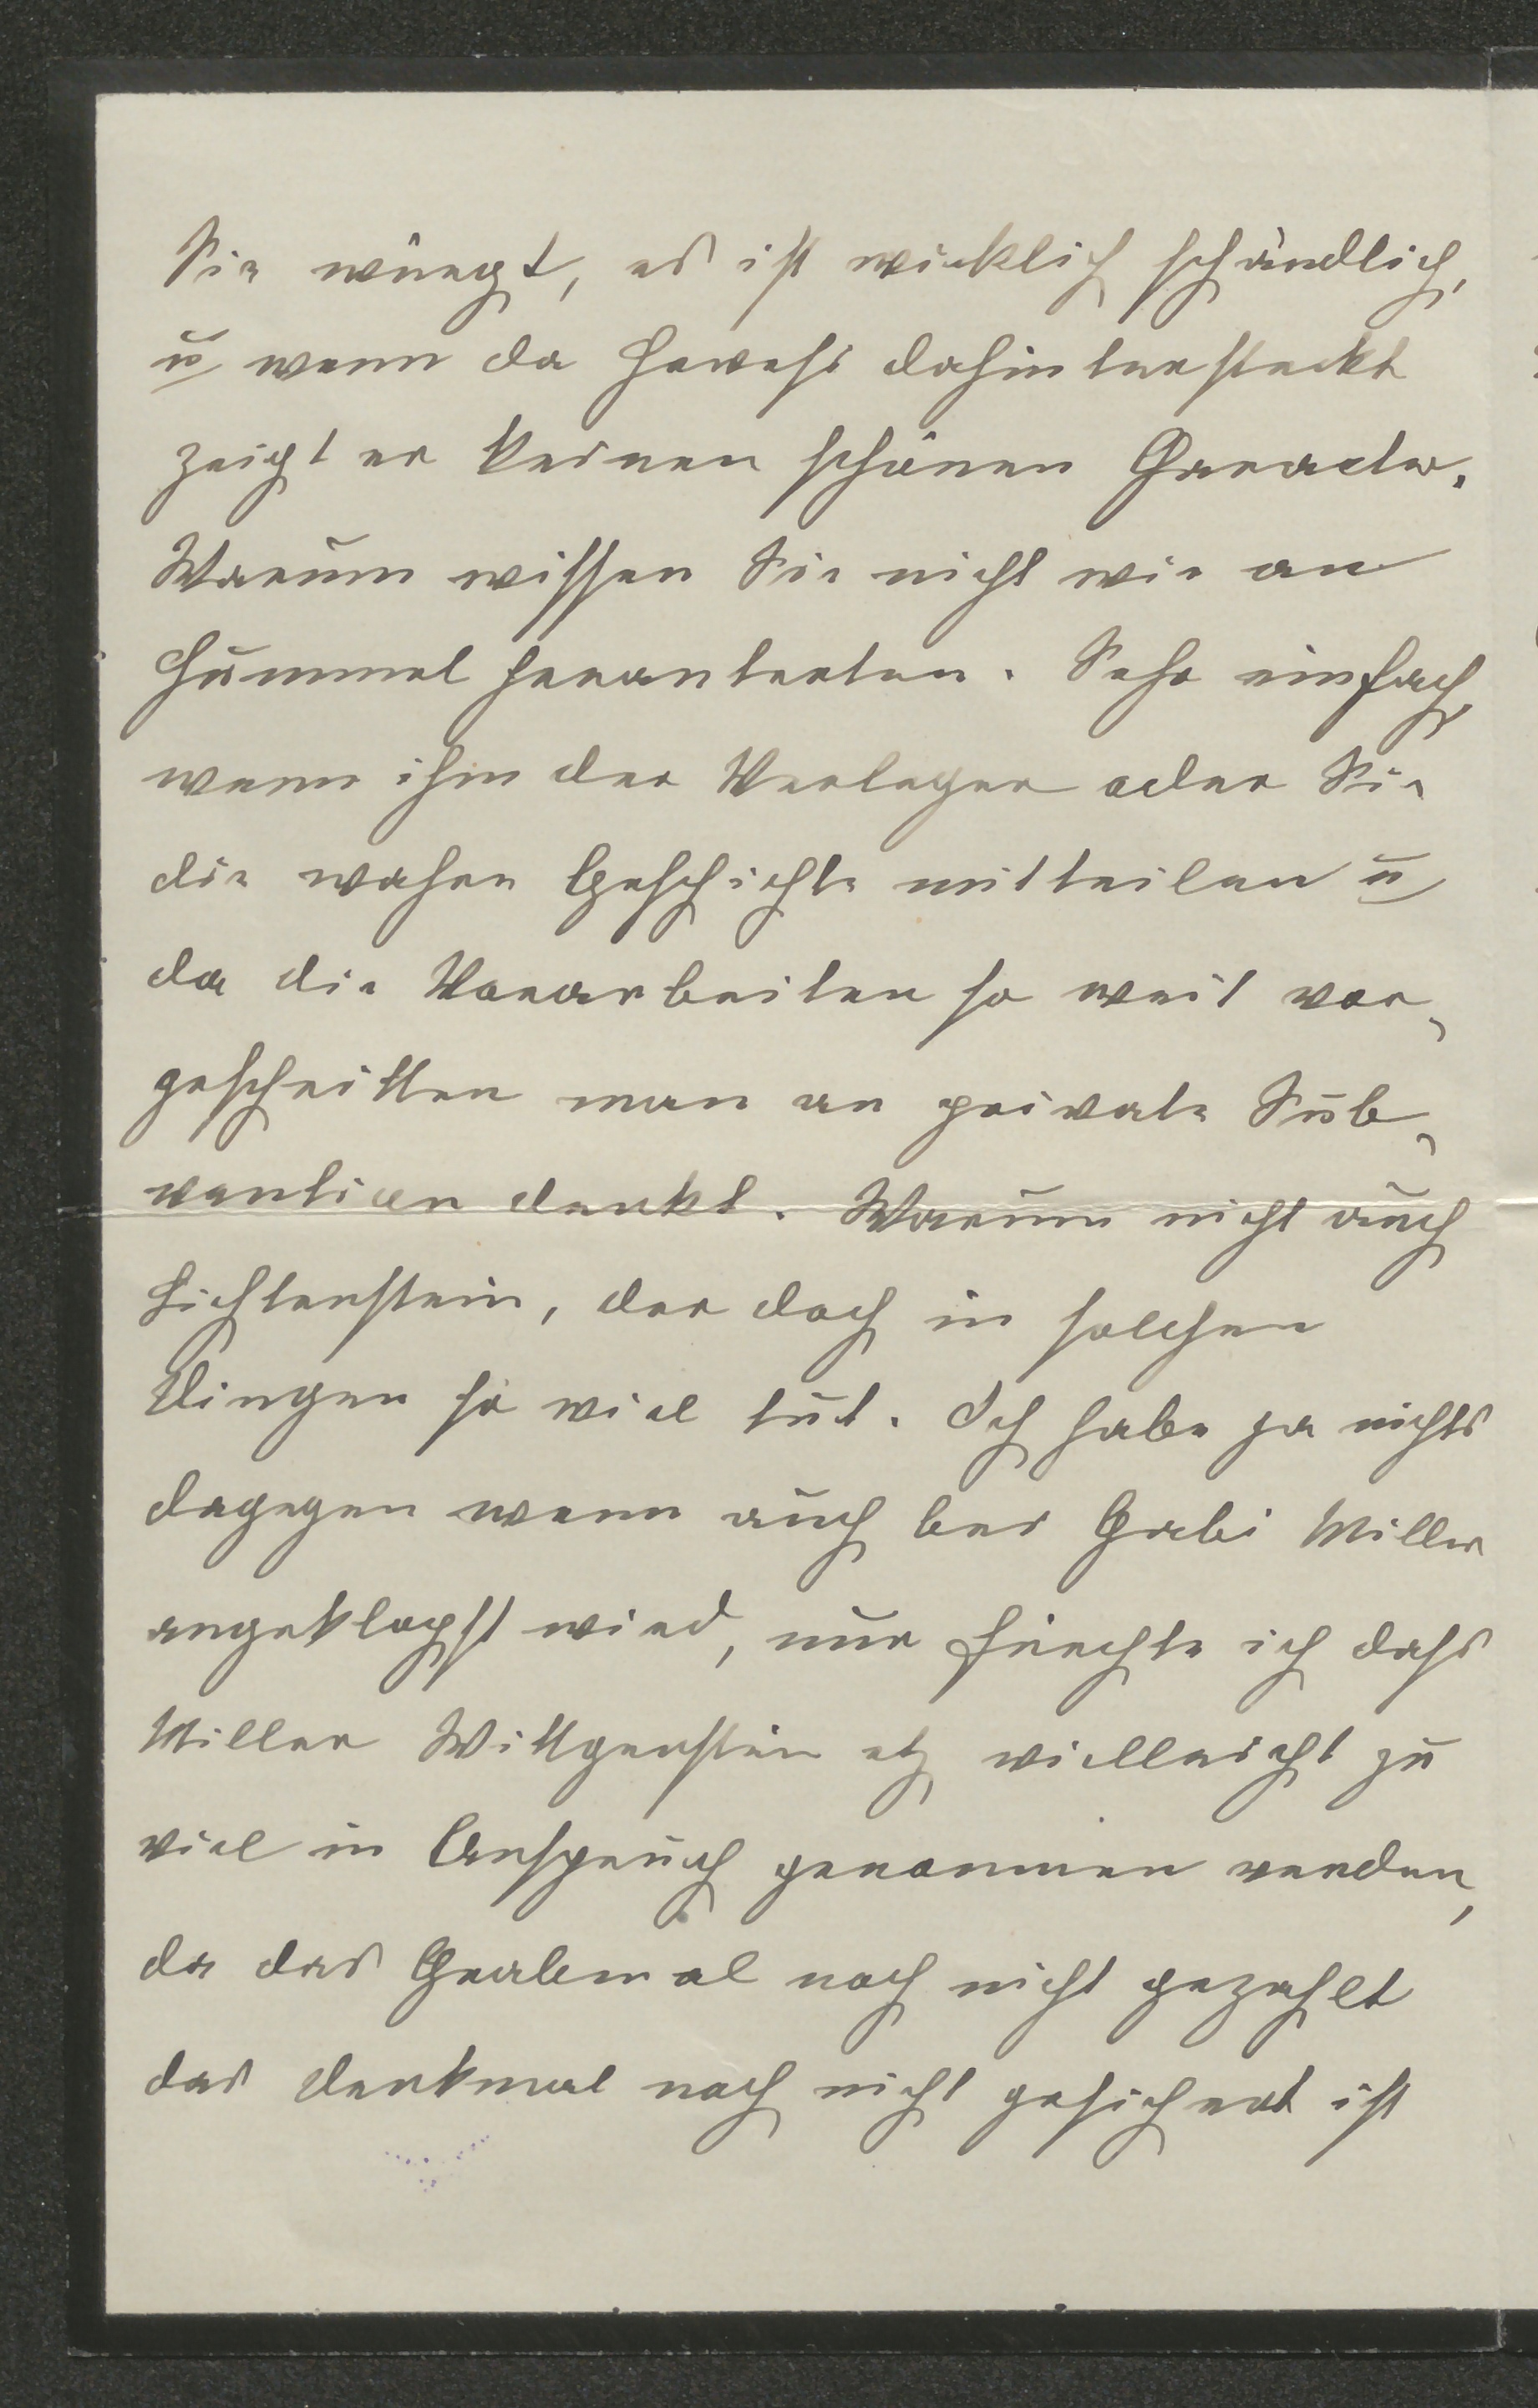 Sie würgt, es ist wirklich schändlich,
u wenn da Hevesi dahintersteckt
zeigt er keinen schönen Character.
Warum wissen Sie nicht wie an
Hummel herantreten. Sehr einfach,
wenn ihm der Verleger oder Sie
die wahre Geschichte mitteilen u
da die Vorarbeiten so weit vor-
geschritten man an private Sub-
vention denkt. Warum nicht auch
Lichtenstein, der doch in solchen
Dingen so viel tut. Ich habe ja nichts
dagegen wenn auch bei Gabi Miller
angeklopft wird, nur fürchte ich dass
Miller Wittgenstein etz vielleicht zu
viel in Anspruch genommen werden,
da das Grabmal noch nicht gezahlt
das Denkmal noch nicht gesichert ist